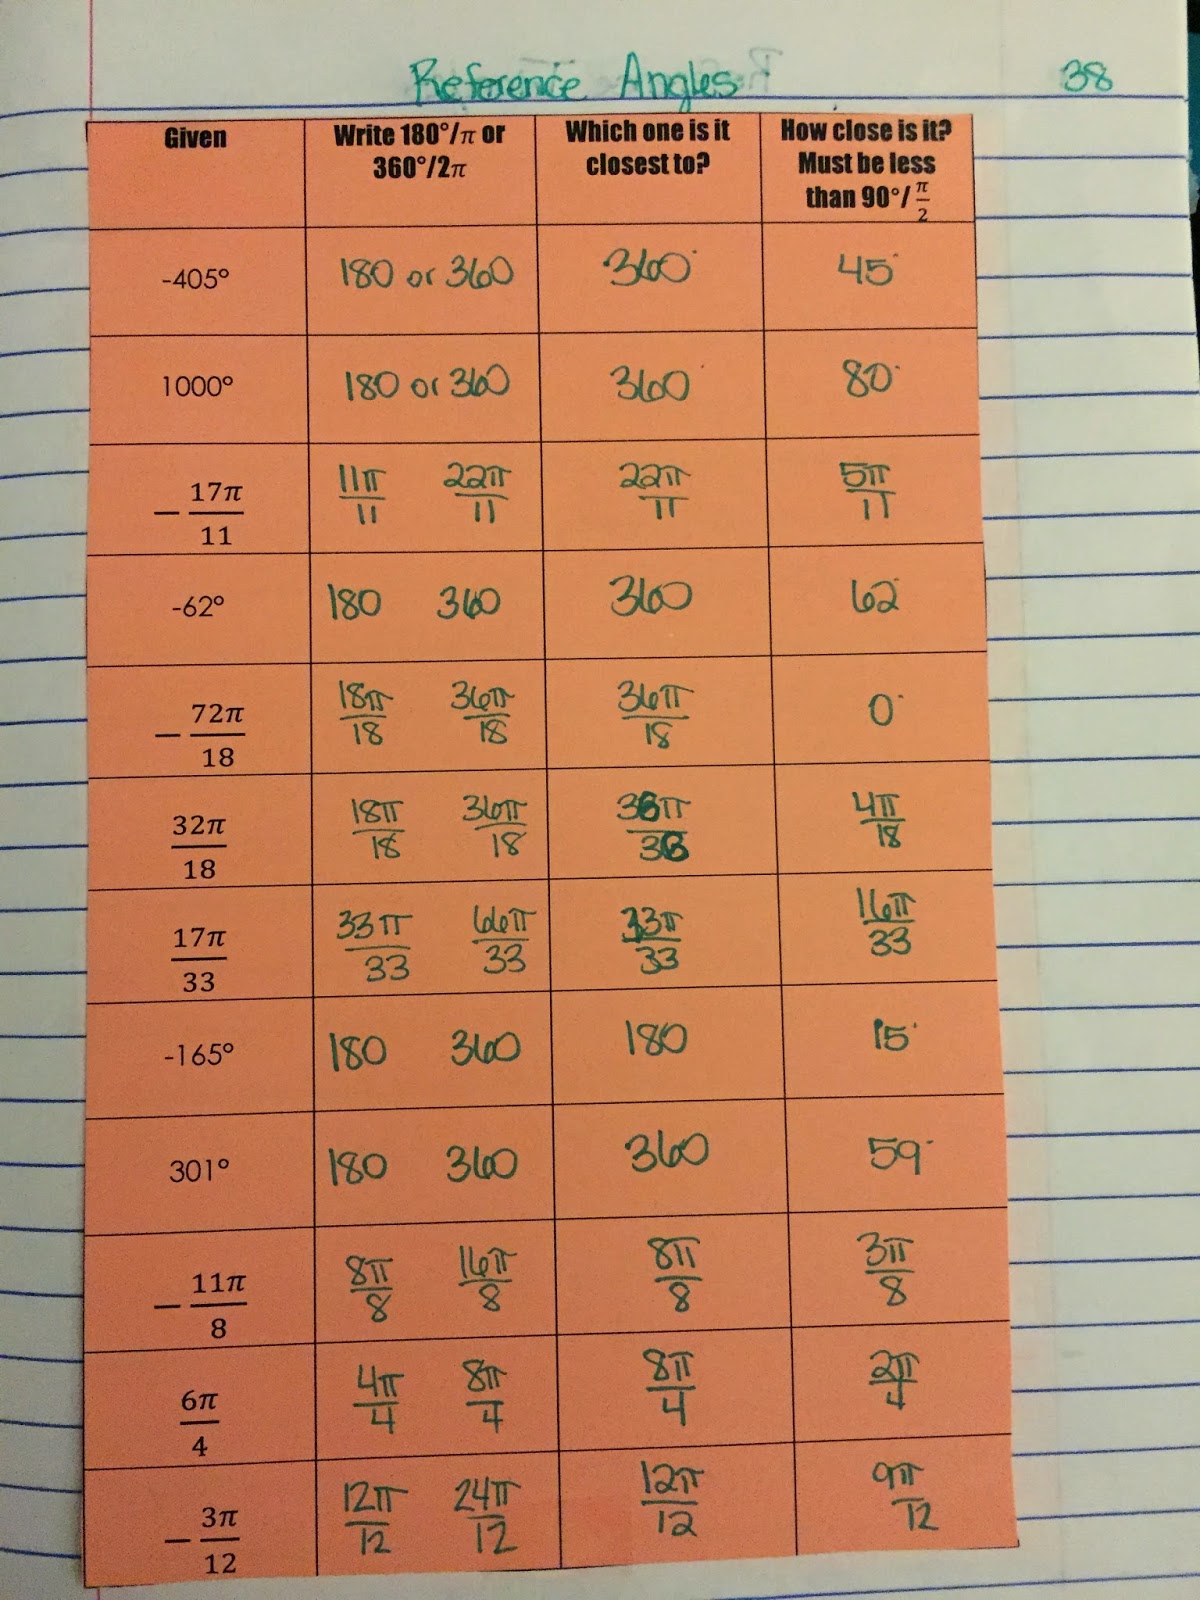 Reference Angles
38
Given
Write 180°/π or
360°/2π
Which one is it
closest to?
How close is it?
Must be less
than 90°/ π/2
-405° 180 or 360 360° 45°
1000° 180 or 360 360° 80°
− 17π/11 11π/11 22π/11 22π/11 5π/11
-62° 180 360 360 62°
− 72π/18 18π/18 36π/18 36π/18 0°
32π/18 18π/18 36π/18 36π/36 4π/18
17π/33 33π/33 66π/33 33π/33 16π/33
-165° 180 360 180 15°
301° 180 360 360 59°
− 11π/8 8π/8 16π/8 8π/8 3π/8
6π/4 4π/4 8π/4 8π/4 2π/4
− 3π/12 12π/12 24π/12 12π/12 9π/12